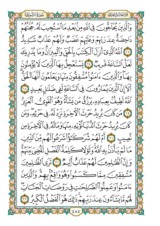 والذين يحاجون في الله من بعد ما استجيب له حجتهم
داحضة عند ربهم وعليهم غضب ولهم عذاب شديد
الله الذي أنزل الكتاب بالحق والميزان وما يدريك لعل
الساعة قريب يستعجل بها الذين لا يؤمنون
بها والذين آمنوا مشفقون منها ويعلمون أنها الحق
ألا إن الذين يمارون في الساعة لفي ضلال بعيد
الله لطيف بعباده يرزق من يشاء وهو القوي العزيز
من كان يريد حرث الآخرة نزد له في حرثه
ومن كان يريد حرث الدنيا نؤته منها وما له في الآخرة
من نصيب أم لهم شركاء شرعوا لهم من الدين
ما لم يأذن به الله ولولا كلمة الفصل لقضي بينهم
وإن الظالمين لهم عذاب أليم ترى الظالمين
مشفقين مما كسبوا وهو واقع بهم والذين
آمنوا وعملوا الصالحات في روضات الجنات
لهم ما يشاءون عند ربهم ذلك هو الفضل الكبير
٤٨٥